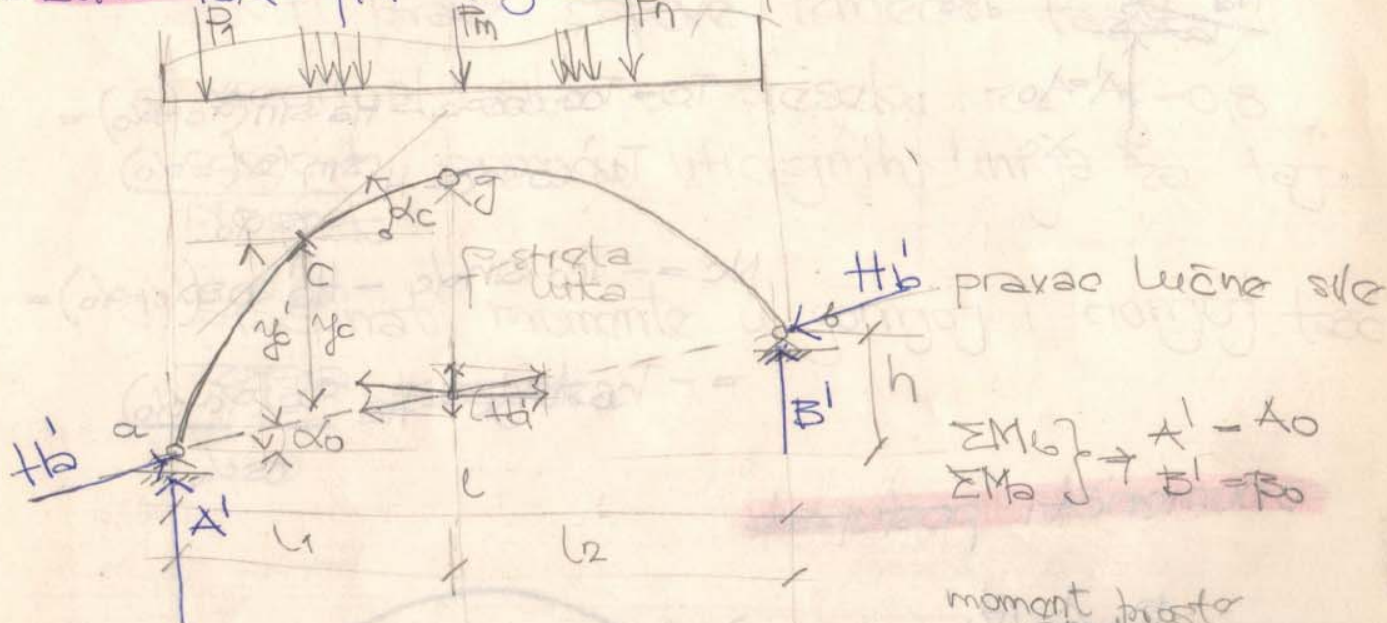 P1 Pm Pn
g
αc
c
f - strela
luka
yc' yc
Hb' pravac lučne sile
b
h
B'
a
αo
Ha'
Ha'
A'
l
l1 l2
ΣMb } → A' = Ao
ΣMa B' = Bo
moment prosto